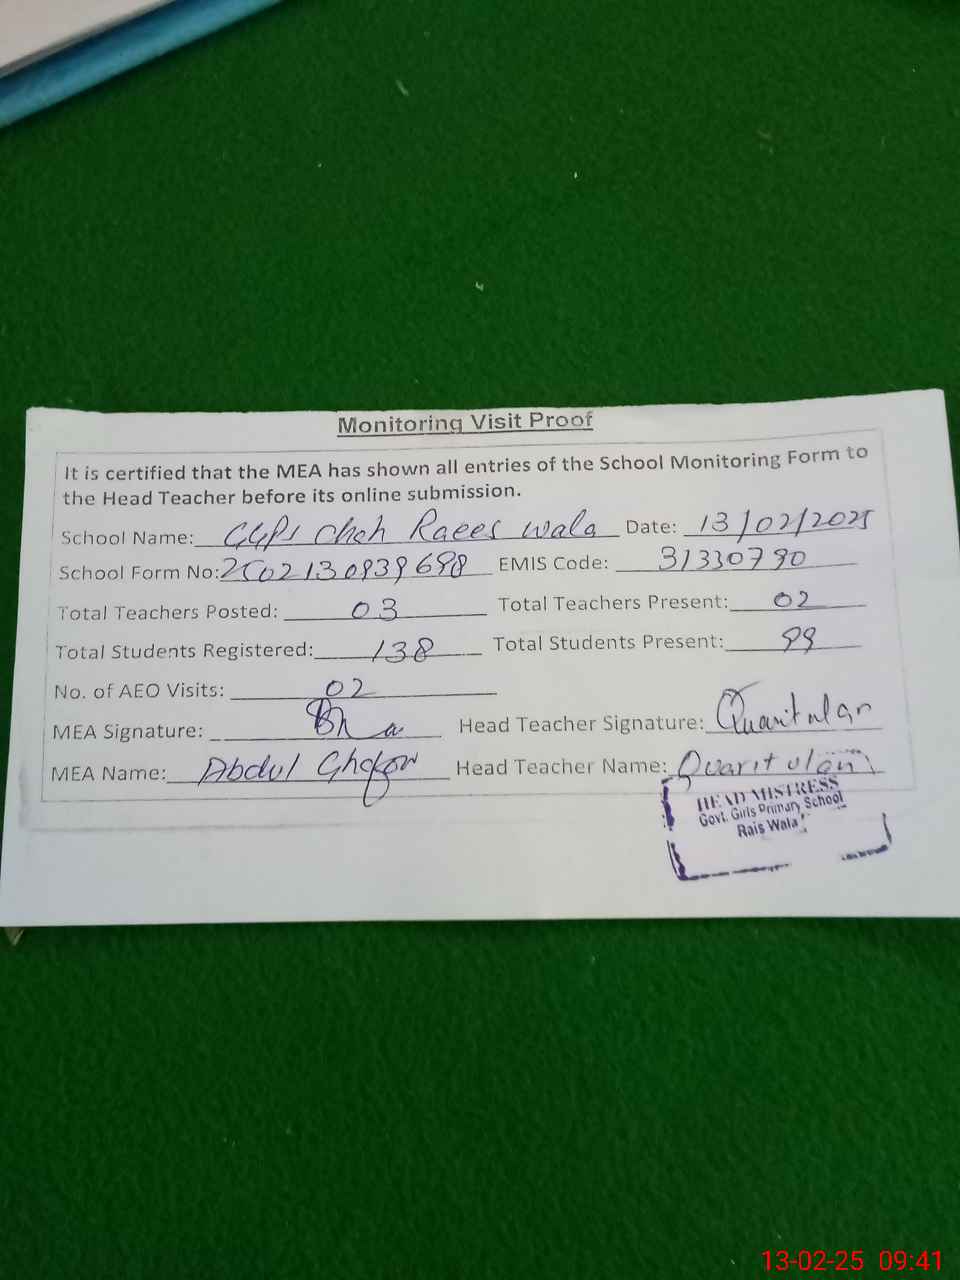 Monitoring Visit Proof
It is certified that the MEA has shown all entries of the School Monitoring Form to
the Head Teacher before its online submission.
School Name: GGPS Chah Raees wala Date: 13/02/2025
School Form No: 2502130939698 EMIS Code: 31330790
Total Teachers Posted: 03 Total Teachers Present: 02
Total Students Registered: 138 Total Students Present: 99
No. of AEO Visits: 02
MEA Signature: Head Teacher Signature: Quaritulan
MEA Name: Abdul Ghafoor Head Teacher Name: Quaritulan
HEAD MISTRESS
Govt. Girls Primary School
Rais Wala
13-02-25 09:41